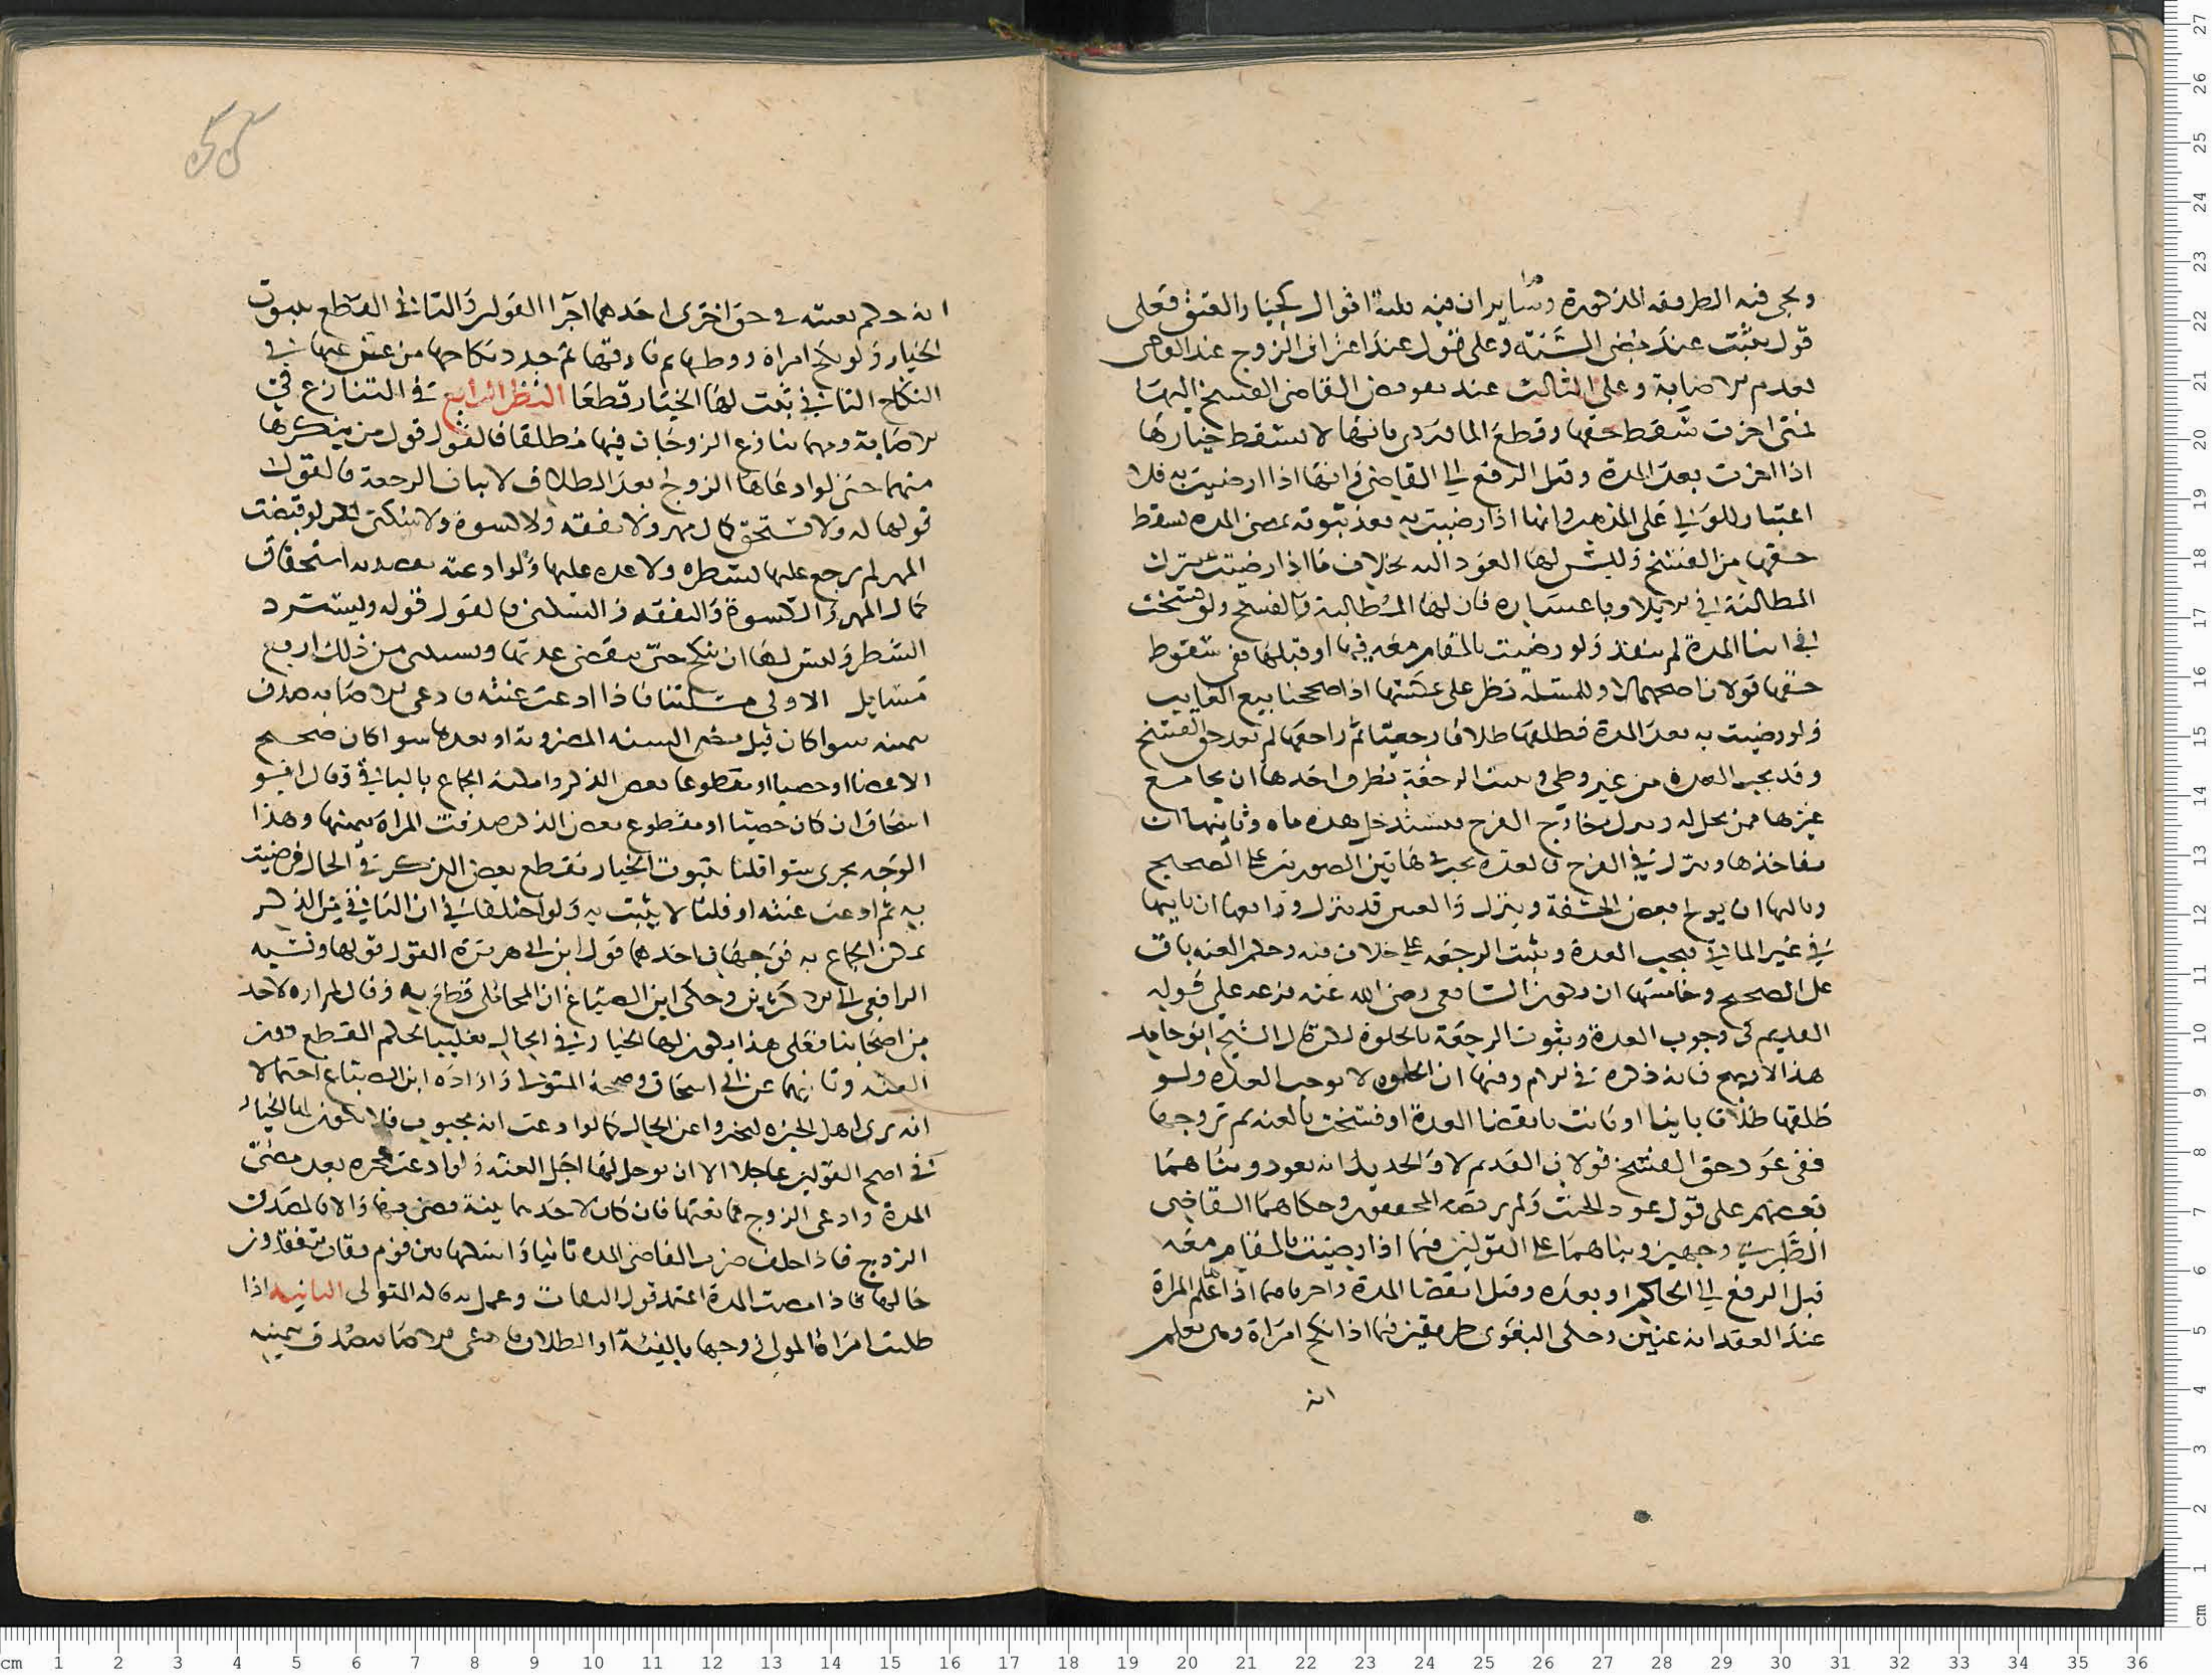 ويجئ فيه الطريقة المذكورة وسايران فيه ثلثة اقوال كخيار العتق فعلى
قول يثبت عند مضى السنة وعلى قول عند اعتراف الزوج عند القاضى
بعدم الاصابة وعلى الثالث عند تفويض القاضى الفسخ اليها
فمتى اخرت سقط حقها وقطع الماوردى بانها لا يسقط خيارها
اذا اخرت بعد المدة وقبل الرفع الى القاضى وانها اذا رضيت به فلا
اعتبار للولى على المذهب وانها اذا رضيت به بعد ثبوته بمضى المدة سقط
حقها من الفسخ وليس لها العود اليه بخلاف ما اذا رضيت بترك
المطالبة فى الايلا وباعساره فان لها المطالبة والفسخ ولو فسخت
فى اثنا المدة لم ينفذ ولو رضيت بالمقام معه فيها او قبلها ففى سقوط
حقها قولان اصحهما لا وللمسئلة نظر على عكسها اذا صححنا بيع الغايب
ولو رضيت به بعد المدة فطلقها طلاقا رجعيا ثم راجعها لم يعد حق الفسخ
وقد يجب العدة من غير وطى ويثبت الرجعة بطرق احدها ان يجامع
غيرها ممن يحل له وينزل خارج الفرج فيستدخل هذه ماه وثانيها ان
يفاخذها وينزل فى الفرج فالعدة تجب فى هاتين الصورتين على الصحيح
وثالثها ان يولج بعض الحشفة وينزل والعنين قد ينزل ورابعها ان ياتيها
فى غير الماتى فيجب العدة ويثبت الرجعة على خلاف فيه وحكم العنة باق
على الصحيح وخامسها ان يكون الشافعى رضى الله عنه فرعه على قوله
القديم فى وجوب العدة وثبوت الرجعة بالخلوة لكن قال الشيخ ابو حامد
هذا لا يصح فانه ذكره فى الام وفيها ان الخلوة لا توجب العدة ولو
طلقها طلاقا باينا او بانت بانقضا العدة او فسخت بالعنة ثم تزوجها
ففى عود حق الفسخ قولان القديم لا والجديد انه يعود وبناهما
بعضهم على قول عود الحنث ولم يرتضه المحققون وحكاهما القاضى
الطبرى وجهين وبناهما على القولين فيما اذا رضيت بالمقام معه
قبل الرفع الى الحاكم او بعده وقبل انقضا المدة واجرياهما اذا علم المراة
عند العقد انه عنين وحكى البغوى طريقين فيما اذا نكح امراة وهى تعلم
انه
انه حكم بعنته فى حق اخرى احدهما اجرا القولين والثانى القطع بثبوت
الخيار ولو نكح امراة ووطيها ثم فارقها ثم جدد نكاحها من عنن عنها فى
النكاح الثانى ثبت لها الخيار قطعا النظر الرابع فى التنازع فى
الاصابة ومهما تنازع الزوجان فيها مطلقا فالقول قول من ينكرها
منهما حتى لو ادعاها الزوج بعد الطلاق لاثبات الرجعة فالقول
قولها له ولا تستحق كمال مهر ولا نفقة ولا كسوة ولا سكنى لكن لو قبضت
المهر لم يرجع عليها بشطره ولا عدة عليها ولو ادعته بصدد استحقاق
كمال المهر والكسوة والنفقة والسكنى فالقول قوله ويسترد
الشطر وليس لها ان تنكح حتى ينقضى عدتها ويستثنى من ذلك اربع
مسايل الاولى مسئلتنا فاذا ادعت عنته فادعى الاصابة صدق
بيمينه سوا كان قبل مضى السنة المضروبة او بعدها سوا كان صحيح
الاعضا او خصيا او مقطوعا بعض الذكر وامكنه الجماع بالباقى وقال ابو
اسحاق ان كان خصيا او مقطوع بعض الذكر صدقت المراة بيمينها وهذا
الوجه يجرى سوا قلنا بثبوت الخيار بقطع بعض الذكر فى الحال فرضيت
به ثم ادعت عنته او قلنا لا يثبت به ولو اختلفا فى ان الباقى من الذكر
يمكن الجماع به فوجهان احدهما قول ابن ابى هريرة القول قولها ونسبه
الرافعى الى الاكثرين وحكى ابن الصباغ ان المحاملى قطع به وقال لم اره لاحد
من اصحابنا فعلى هذا يكون لها الخيار فى الحال تغليبا لحكم القطع دون
العنة وثانيهما عن ابى اسحاق وصححه المتولى وزاده ابن الصباغ احتمالا
انه يرى اهل الخبرة ليخبروا عن الحال كما لو ادعت انه مجبوب فلا يكون لها الخيار
فى اصح القولين عاجلا الا ان يوجل لها اجل العنة ولو ادعت عجزه بعد مضى
المدة وادعى الزوج ممانعتها فان كان لاحدهما بينة قضى بها والا فالمصدق
الزوج فاذا حلف ضرب القاضى المدة ثانيا واسكنها بين قوم ثقات يتفقدون
حالها فاذا مضت المدة اعتمد قول الثقات وعمل به قاله المتولى الثانية اذا
طلبت امراة المولى زوجها بالفيئة او الطلاق فادعى الاصابة صدق بيمينه